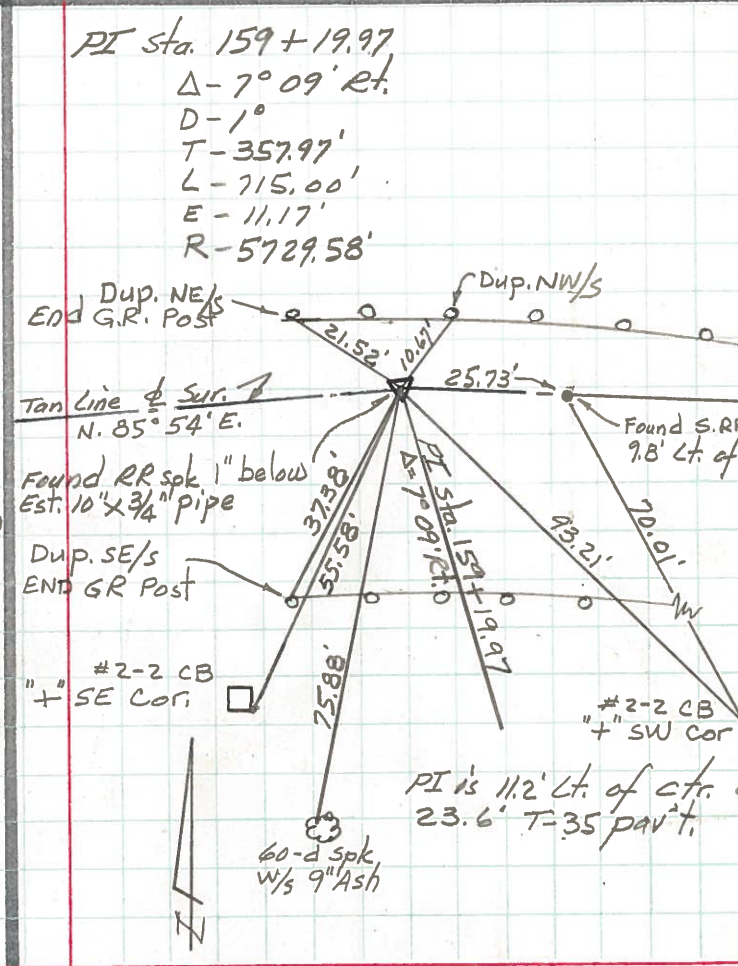 PI Sta. 159+19.97
Δ - 7° 09' Rt.
D - 1°
T - 357.97'
L - 715.00'
E - 11.17'
R - 5729.58'
Dup. NE/s
End G.R. Post
Dup. NW/s
21.52'
10.67'
25.73'
Tan Line ℄ Sur.
N. 85° 54' E.
Found S.RR
9.8' Lt. of
Found RR spk 1" below
Est. 10" x 3/4" pipe
37.38'
55.58'
PI Sta. 159+19.97
Δ = 7° 09' Rt.
93.21'
70.01'
Dup. SE/s
END GR Post
#2-2 CB
"+" SE Cor.
75.88'
#2-2 CB
"+" SW Cor
PI is 11.2' Lt. of ctr.
23.6' T-35 pav't.
60-d spk
W/s 9" Ash
N